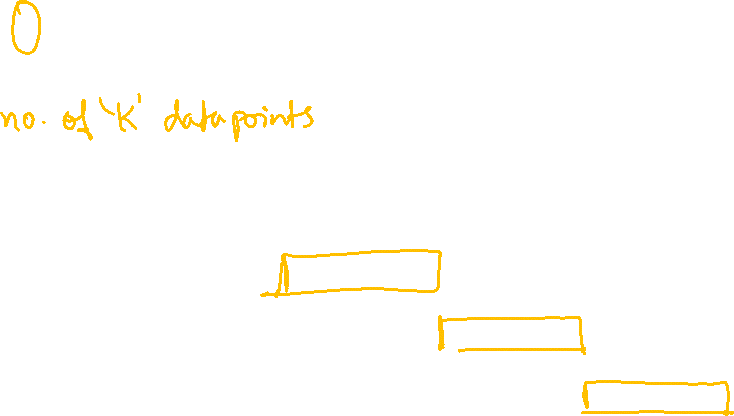 0
no. of 'K' datapoints